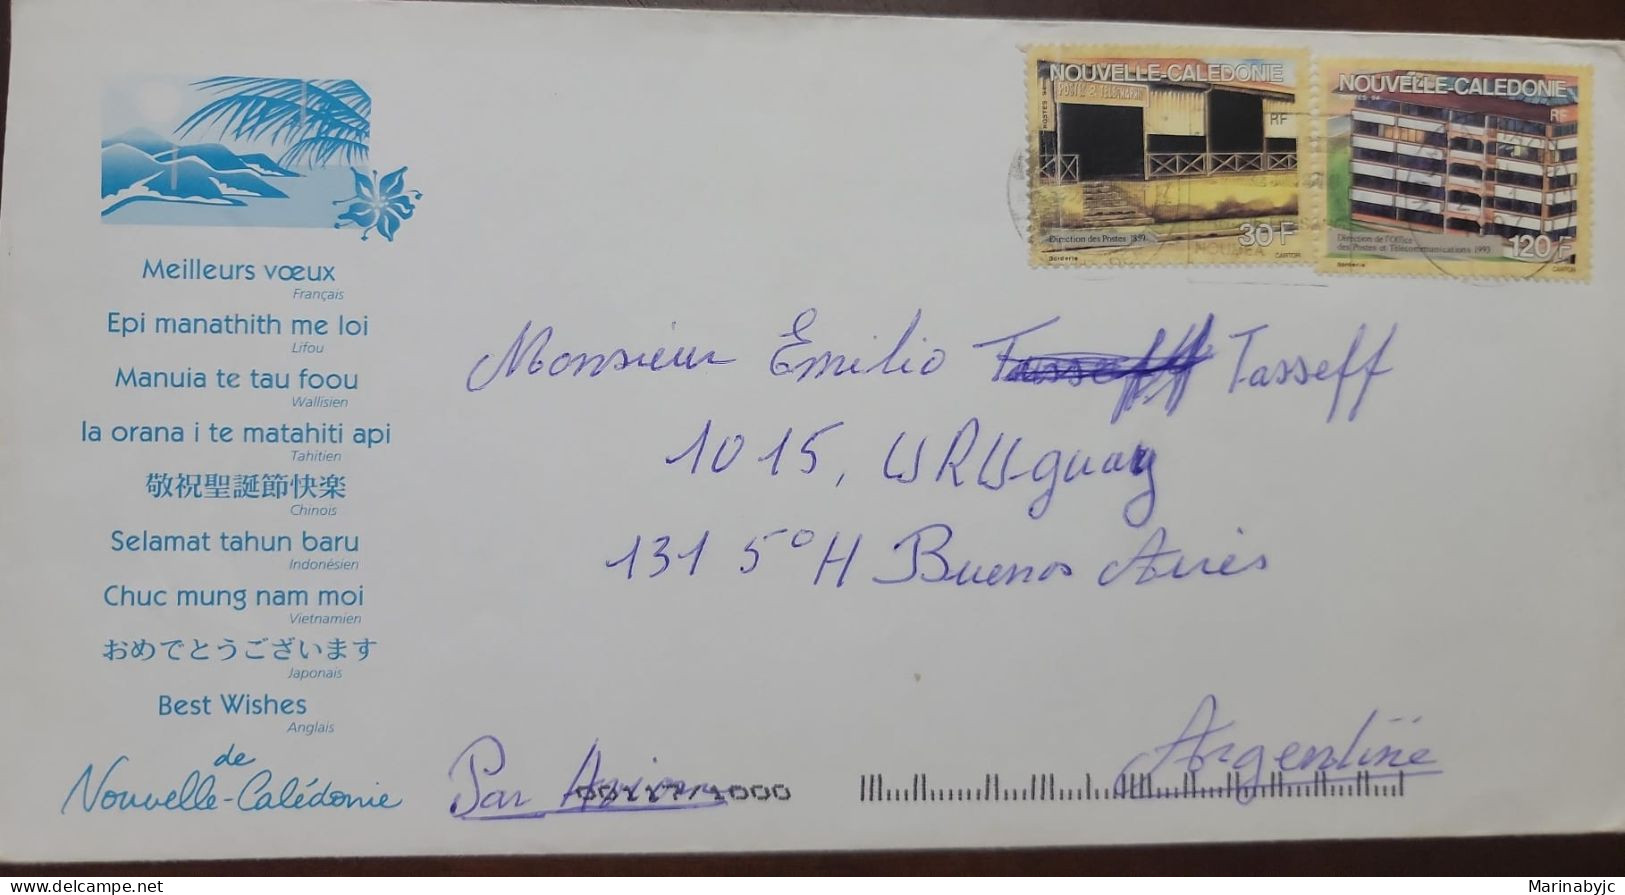 NOUVELLE-CALEDONIE
POSTES 94
RF
Direction des Postes
30 F
Borderie
CARTOR
NOUVELLE-CALEDONIE
RF
Direction de l'Office
des Postes et Télécommunications 1993
120 F
Borderie
CARTOR
NOUMEA
Meilleurs vœux
Français
Epi manathith me loi
Lifou
Manuia te tau foou
Wallisien
Ia orana i te matahiti api
Tahitien
敬祝聖誕節快楽
Chinois
Selamat tahun baru
Indonésien
Chuc mung nam moi
Vietnamien
おめでとうございます
Japonais
Best Wishes
Anglais
de
Nouvelle-Calédonie
Monsieur Emilio Tasseff Tasseff
1015, URUguay
131 5°H Buenos Aires
Argentine
Par Avion
Marinabyjc